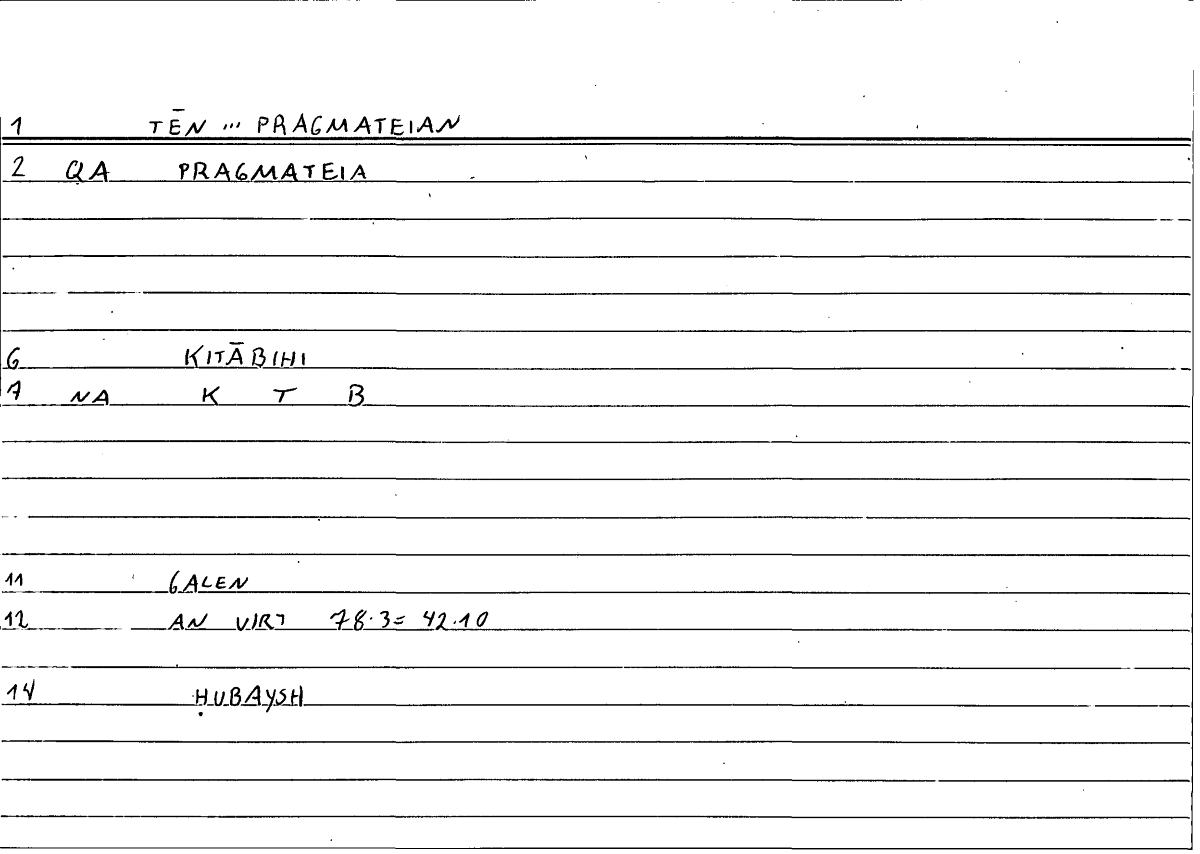 1 TĒN ... PRAGMATEIAN
2 QA PRAGMATEIA
6 KITĀBIHI
7 NA K T B
11 GALEN
12 AN VIRT 78.3= 42.10
14 ḤUBAYSH